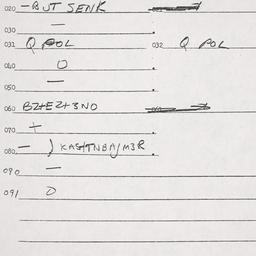 020 -BUT SENK
030 —
031 Q POL 032 Q POL
040 O
050 —
060 BZ+EZ+3NO
070 +
080 - ) KAS+TNBA/M3R
090 —
091 O